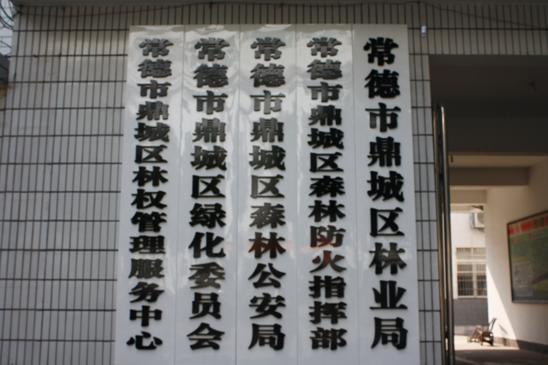 常德市鼎城区林业局
常德市鼎城区森林防火指挥部
常德市鼎城区森林公安局
常德市鼎城区绿化委员会
常德市鼎城区林权管理服务中心